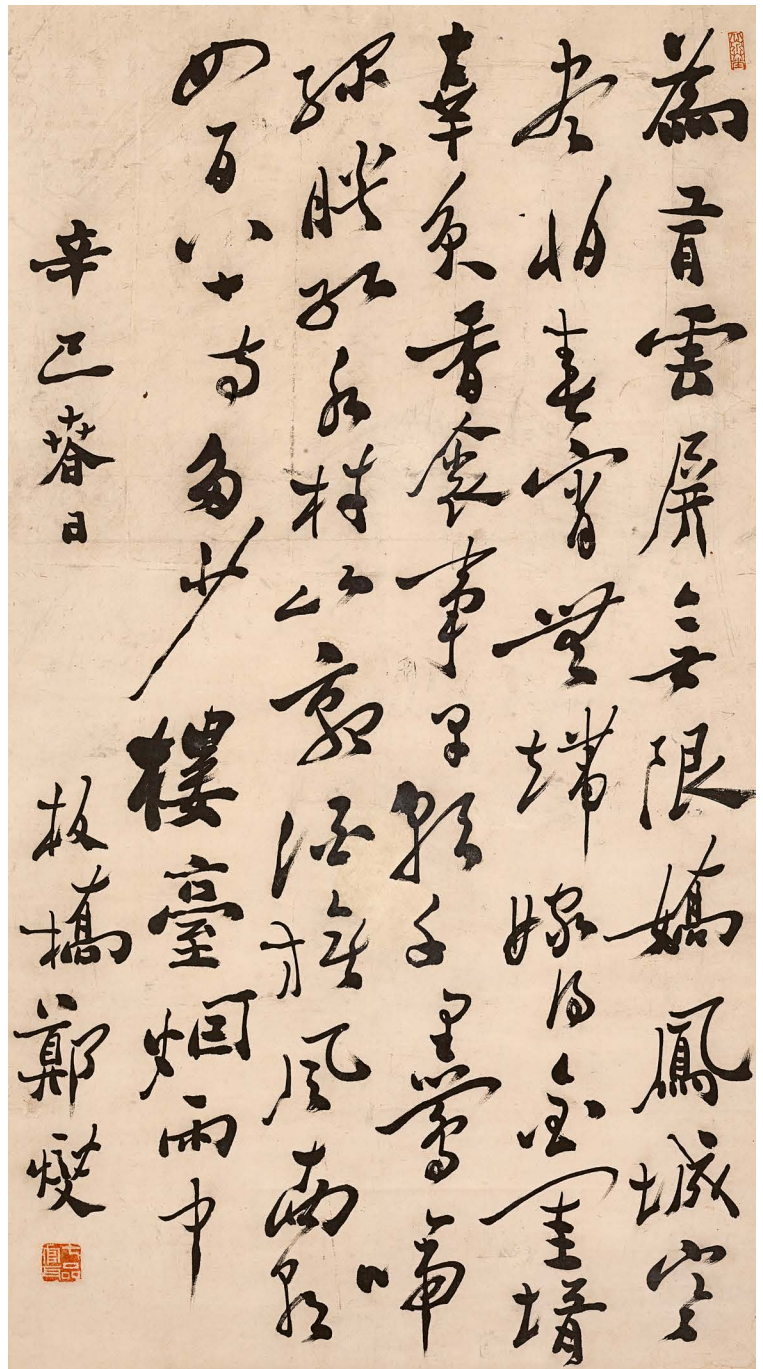 為有雲屏無限嬌鳳城寒
盡怕春宵無端嫁得金龜婿
辜負香衾事早朝千里鶯啼
綠映紅水村山郭酒旗風南朝
四百八十寺多少樓臺烟雨中
辛巳春日
板橋鄭燮